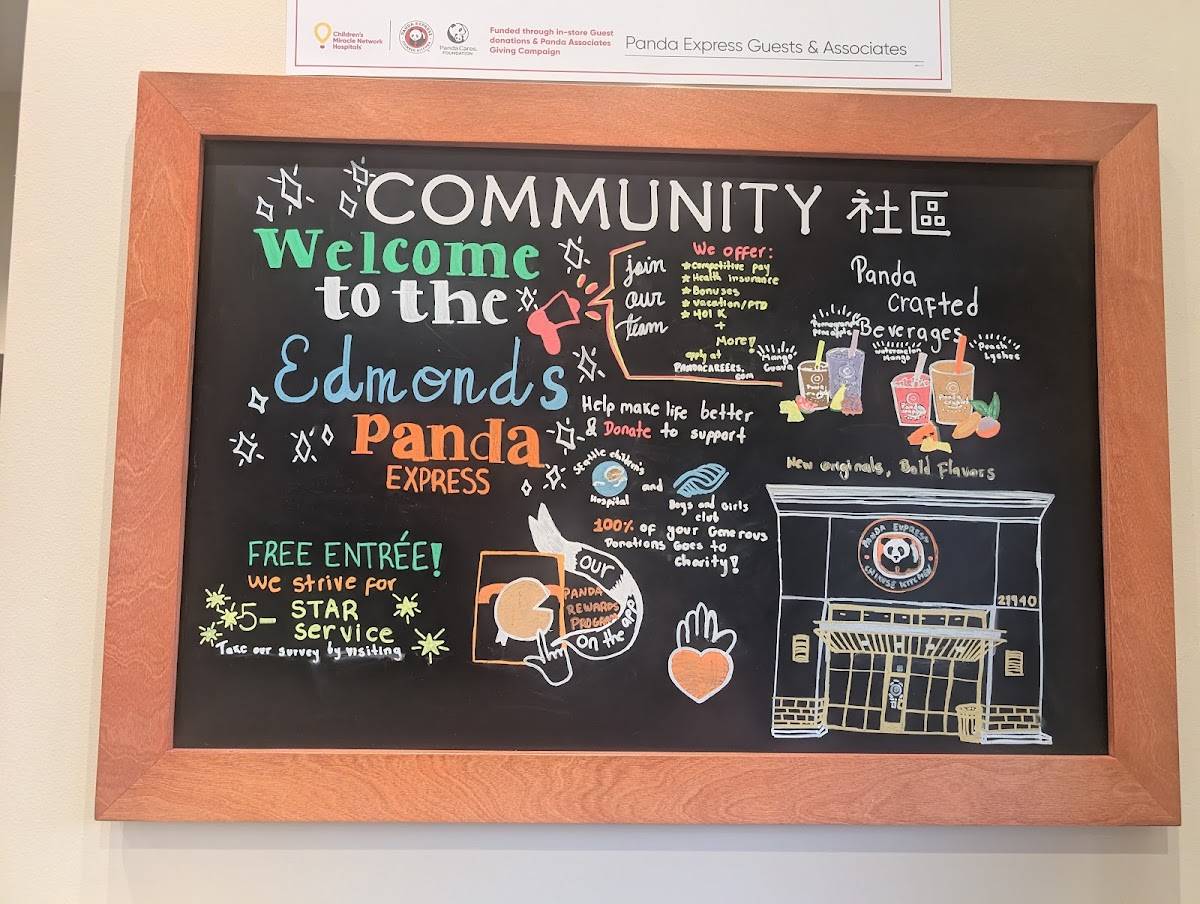 Children's
Miracle Network
Hospitals
PANDA EXPRESS
CHINESE KITCHEN
Panda Cares
FOUNDATION
Funded through in-store Guest
donations & Panda Associates
Giving Campaign
Panda Express Guests & Associates
COMMUNITY 社區
Welcome
to the
Edmonds
Panda
EXPRESS
join
our
team
We offer:
Competitive pay
Health insurance
Bonuses
Vacation/PTO
401 K
+
More!
apply at
PANDACAREERS.
com
Panda
Crafted
Beverages
Mango
Guava
Pomegranate
Pineapple
Watermelon
Mango
Peach
Lychee
New originals, Bold Flavors
Help make life better
& Donate to support
Seattle children's
Hospital
and
Boys and Girls
club
100% of your Generous
Donations Goes to
charity!
FREE ENTRÉE!
We strive for
5- STAR
Service
Take our survey by visiting
our
PANDA
REWARDS
PROGRAM
on the app
PANDA EXPRESS
CHINESE KITCHEN
21940